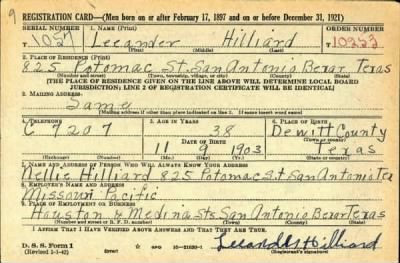 9
REGISTRATION CARD—(Men born on or after February 17, 1897 and on or before December 31, 1921)
SERIAL NUMBER 1. NAME (Print) ORDER NUMBER
1027 Leeander Hilliard 10253
(First) (Middle) (Last)
2. PLACE OF RESIDENCE (Print)
825 Potomac St. San Antonio Bexar Texas
(Number and street) (Town, township, village, or city) (County) (State)
[THE PLACE OF RESIDENCE GIVEN ON THE LINE ABOVE WILL DETERMINE LOCAL BOARD
JURISDICTION; LINE 2 OF REGISTRATION CERTIFICATE WILL BE IDENTICAL]
3. MAILING ADDRESS
Same
[Mailing address if other than place indicated on line 2. If same insert word same]
4. TELEPHONE 5. AGE IN YEARS 6. PLACE OF BIRTH
C 7207 38 Dewitt County
DATE OF BIRTH (Town or county)
11 9 1903 Texas
(Exchange) (Number) (Mo.) (Day) (Yr.) (State or country)
7. NAME AND ADDRESS OF PERSON WHO WILL ALWAYS KNOW YOUR ADDRESS
Nellie Hilliard 825 Potomac St. San Antonio Tex
8. EMPLOYER'S NAME AND ADDRESS
Missouri Pacific
9. PLACE OF EMPLOYMENT OR BUSINESS
Houston & Medina Sts San Antonio Bexar Texas
(Number and street or R. F. D. number) (Town) (County) (State)
I AFFIRM THAT I HAVE VERIFIED ABOVE ANSWERS AND THAT THEY ARE TRUE.
D. S. S. Form 1
(Revised 1-1-42) (over) GPO 16—21630-1 Leeander Hilliard
(Registrant's signature)